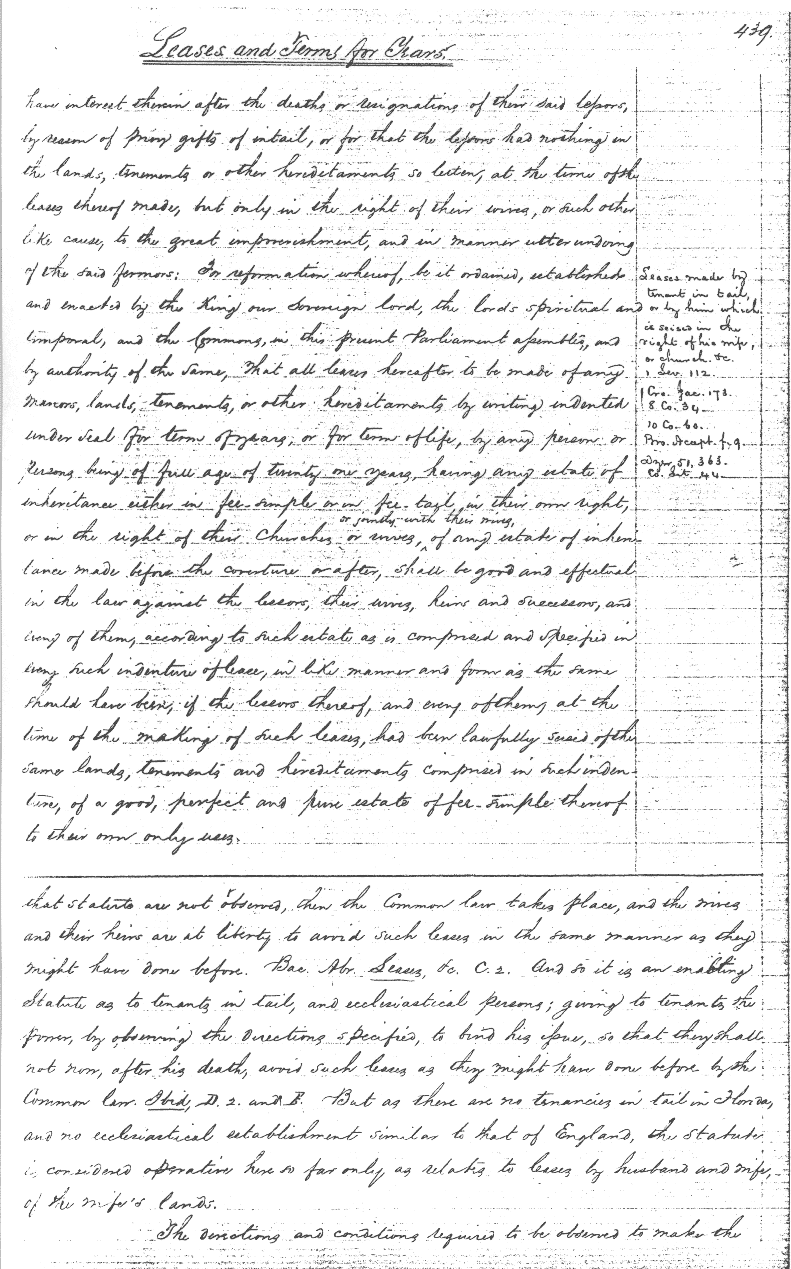 439.
Leases and Terms for Years.
have interest therein after the deaths or resignations of their said lessors,
by reason of prior gifts of intail, or for that the lessors had nothing in
the lands, tenements or other hereditaments so letten, at the time of the
leases thereof made, but only in the right of their wives, or such other
like cause, to the great impoverishment, and in manner utter undoing
of the said fermors: For reformation whereof, be it ordained, established
and enacted by the King our Sovereign lord, the lords spiritual and
temporal, and the Commons, in this present Parliament assembled, and
by authority of the same, That all leases hereafter to be made of any
manors, lands, tenements, or other hereditaments by writing indented
under seal for term of years, or for term of life, by any person or
persons being of full age of twenty one years, having any estate of
inheritance either in fee-simple or in fee-tail, in their own right,
or in the right of their Churches or wives, or jointly with their wives, of any estate of inheri-
tance made before the coverture or after, shall be good and effectual
in the law against the lessors, their wives, heirs and successors, and
every of them, according to such estate as is comprised and specified in
every such indenture of lease, in like manner and form as the same
should have been, if the lessors thereof, and every of them, at the
time of the making of such leases, had been lawfully seised of the
same lands, tenements and hereditaments comprised in such inden-
ture, of a good, perfect and pure estate of fee-simple thereof
to their own only uses.
Leases made by
tenant in tail,
or by him which
is seised in the
right of his wife,
or church. &c.
1 Lev. 112.
1 Cro. Jac. 173.
8 Co. 34.
10 Co. 60.
Bro. Accept. f. 9.
Dyer, 51, 363.
Co. Int. 44.
that statute are not observed, then the Common law takes place, and the wives
and their heirs are at liberty to avoid such leases in the same manner as they
might have done before. Bac. Abr. Leases, &c. C. 2. And so it is an enabling
Statute as to tenants in tail, and ecclesiastical persons; giving to tenants the
power, by observing the directions specified, to bind his issue, so that they shall
not now, after his death, avoid such leases as they might have done before by the
Common law. Ibid, D. 2. and E. But as there are no tenancies in tail in Florida,
and no ecclesiastical establishment similar to that of England, the Statute
is considered operative here so far only as relates to leases by husband and wife,
of the wife's lands.
The directions and conditions required to be observed to make the